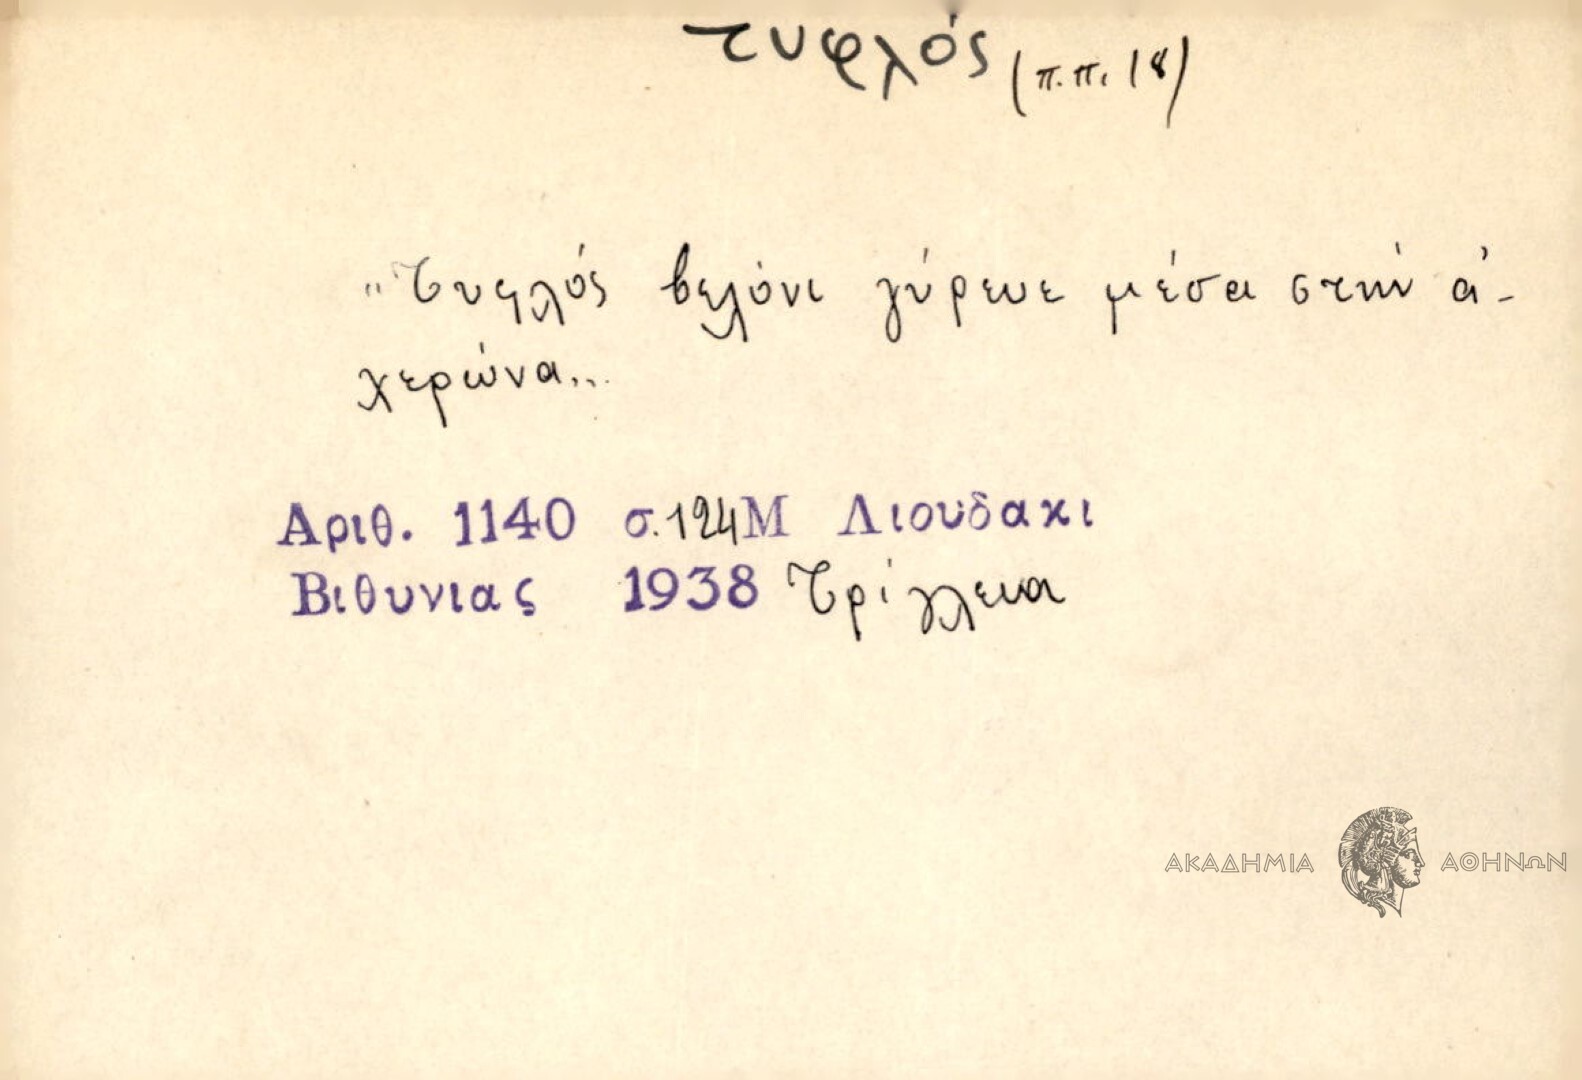 τυφλός (π.π. 18)
"Τυφλός βελόνι γύρευε μέσα στήν ἀ-
χερώνα...
Αριθ. 1140 σ. 124 Μ Λιουδακι
Βιθυνιας 1938 Τρίγλεια
ΑΚΑΔΗΜΙΑ ΑΘΗΝΩΝ